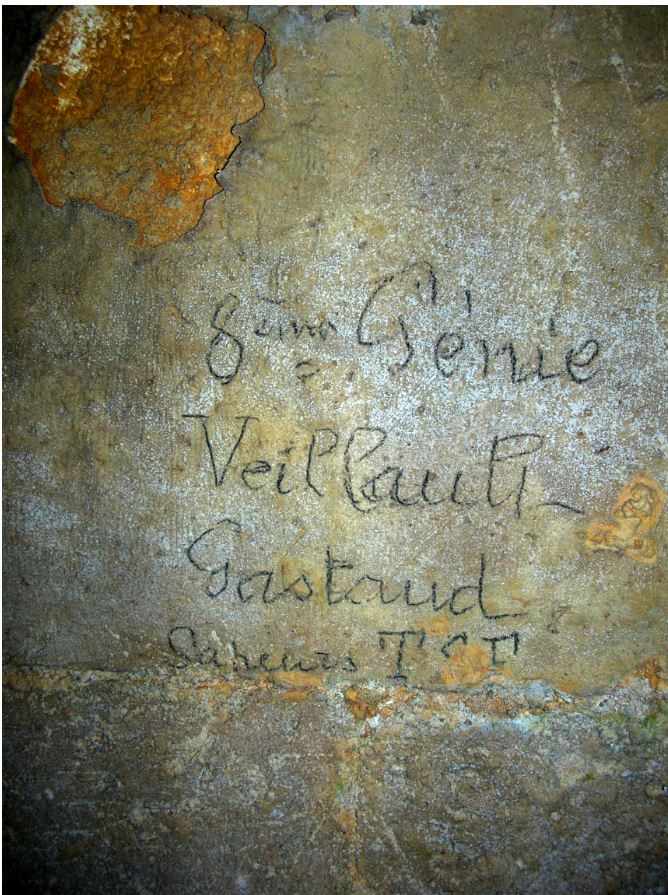 8ème Génie
Veillault
Gastaud
Sapeurs TSF